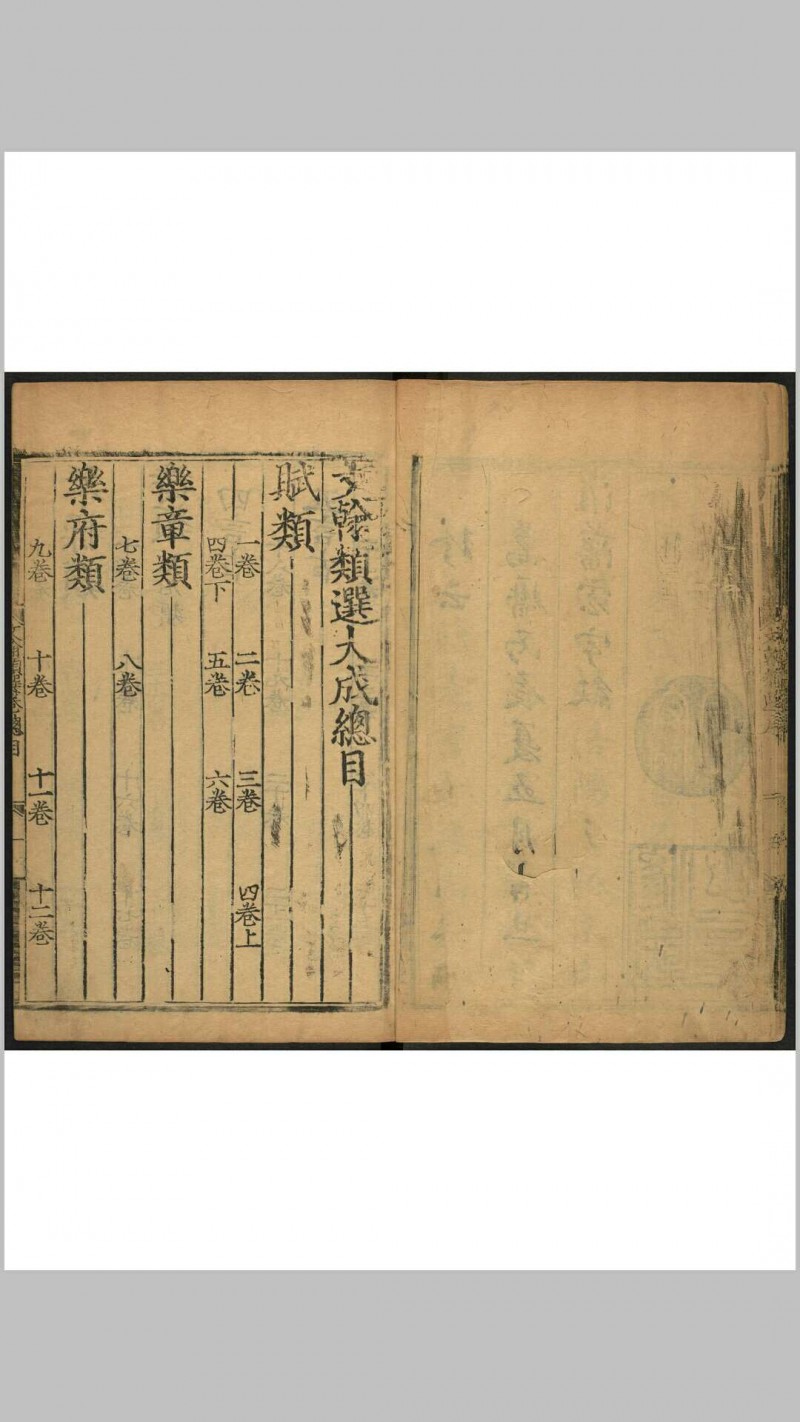 文翰類選大成總目
賦類
一卷 二卷 三卷 四卷上
四卷下 五卷 六卷
樂章類
七卷 八卷
樂府類
九卷 十卷 十一卷 十二卷